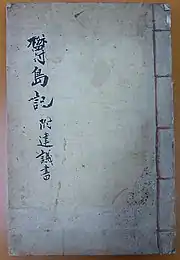 島記
附建議書